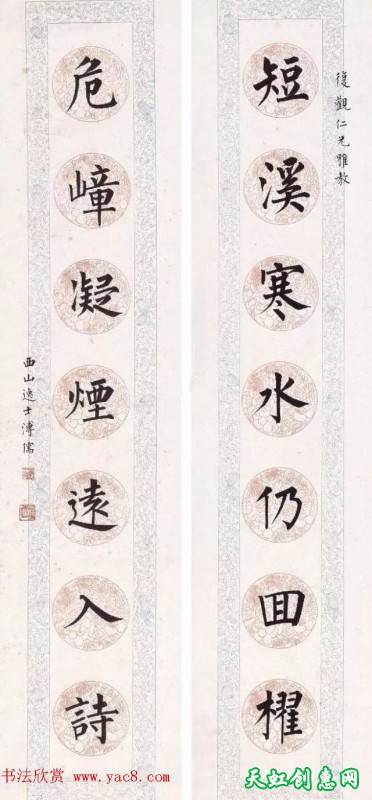 復觀仁兄雅教
短溪寒水仍囬櫂
危嶂凝煙遠入詩
西山逸士溥儒
书法欣赏 www.yac8.com
天虹创惠网